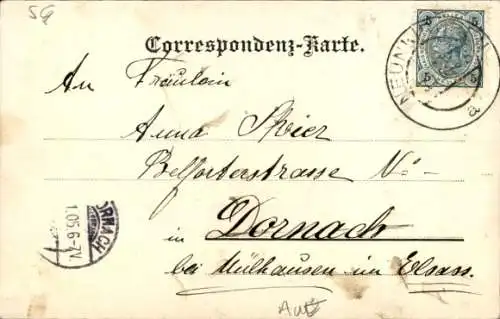 SG
Correspondenz-Karte.
An Fräulein
Anna
Belforterstrasse No -
in Dornach
bei Mülhausen im Elsass.
5 5
NEUNKI
a
ORNACH
1.05.6-7V.